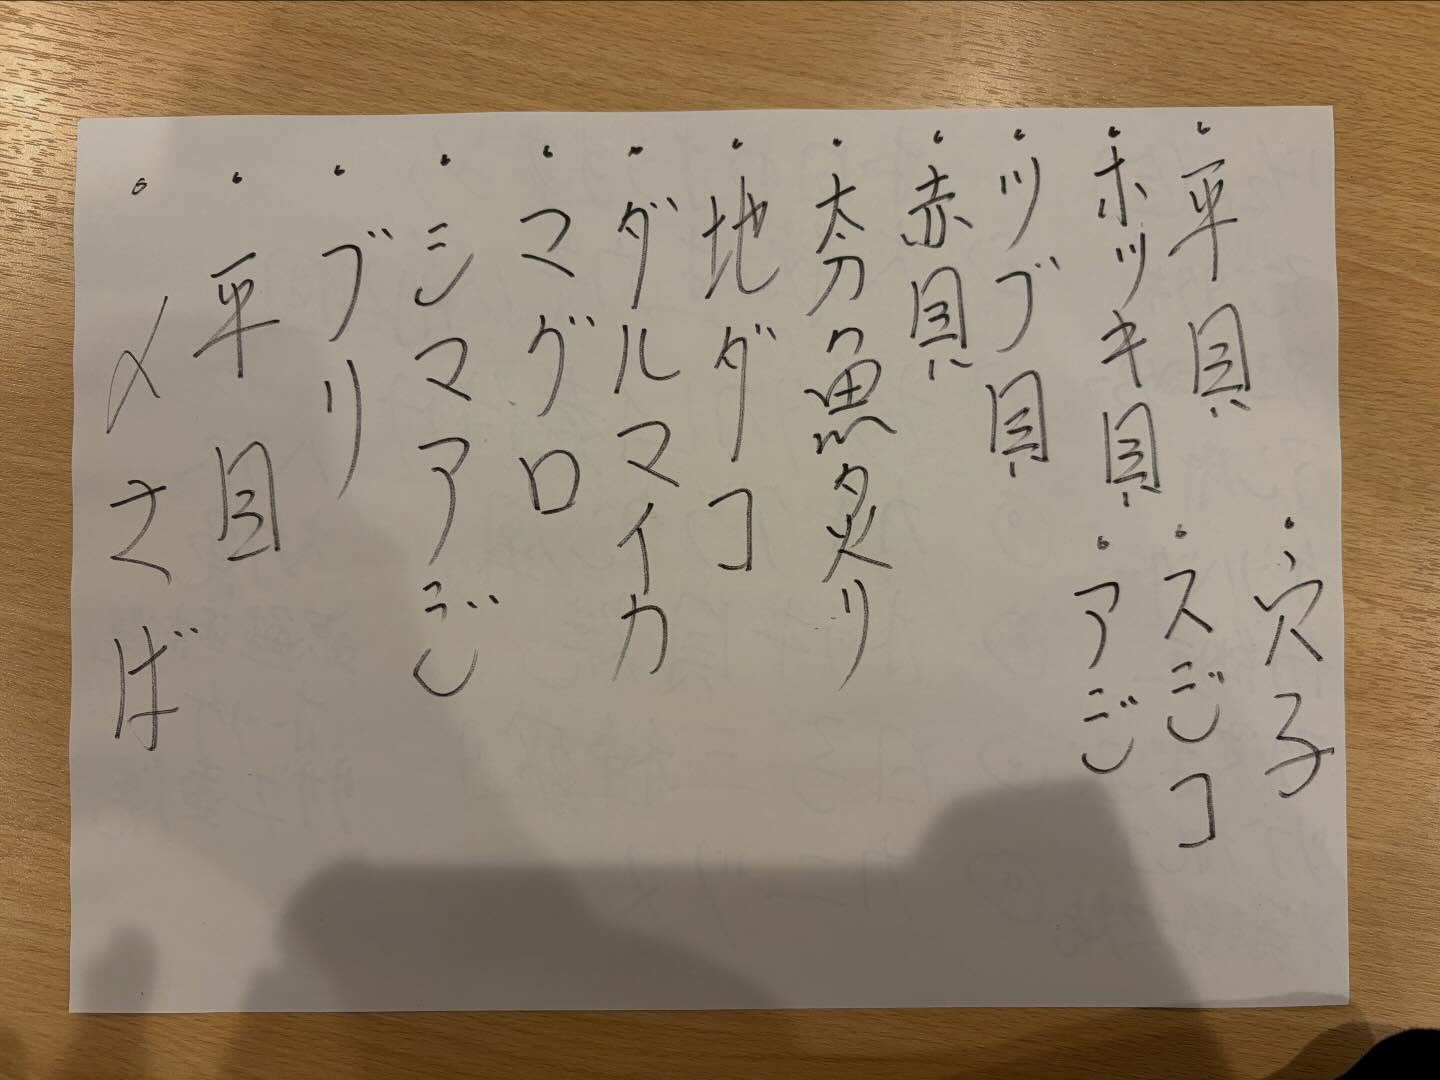 ・平貝
・ホッキ貝
・ツブ貝
・赤貝
・太刀魚炙り
・地ダコ
・ダルマイカ
・マグロ
・シマアジ
・ブリ
・平目
・〆さば
・穴子
・スジコ
・アジ